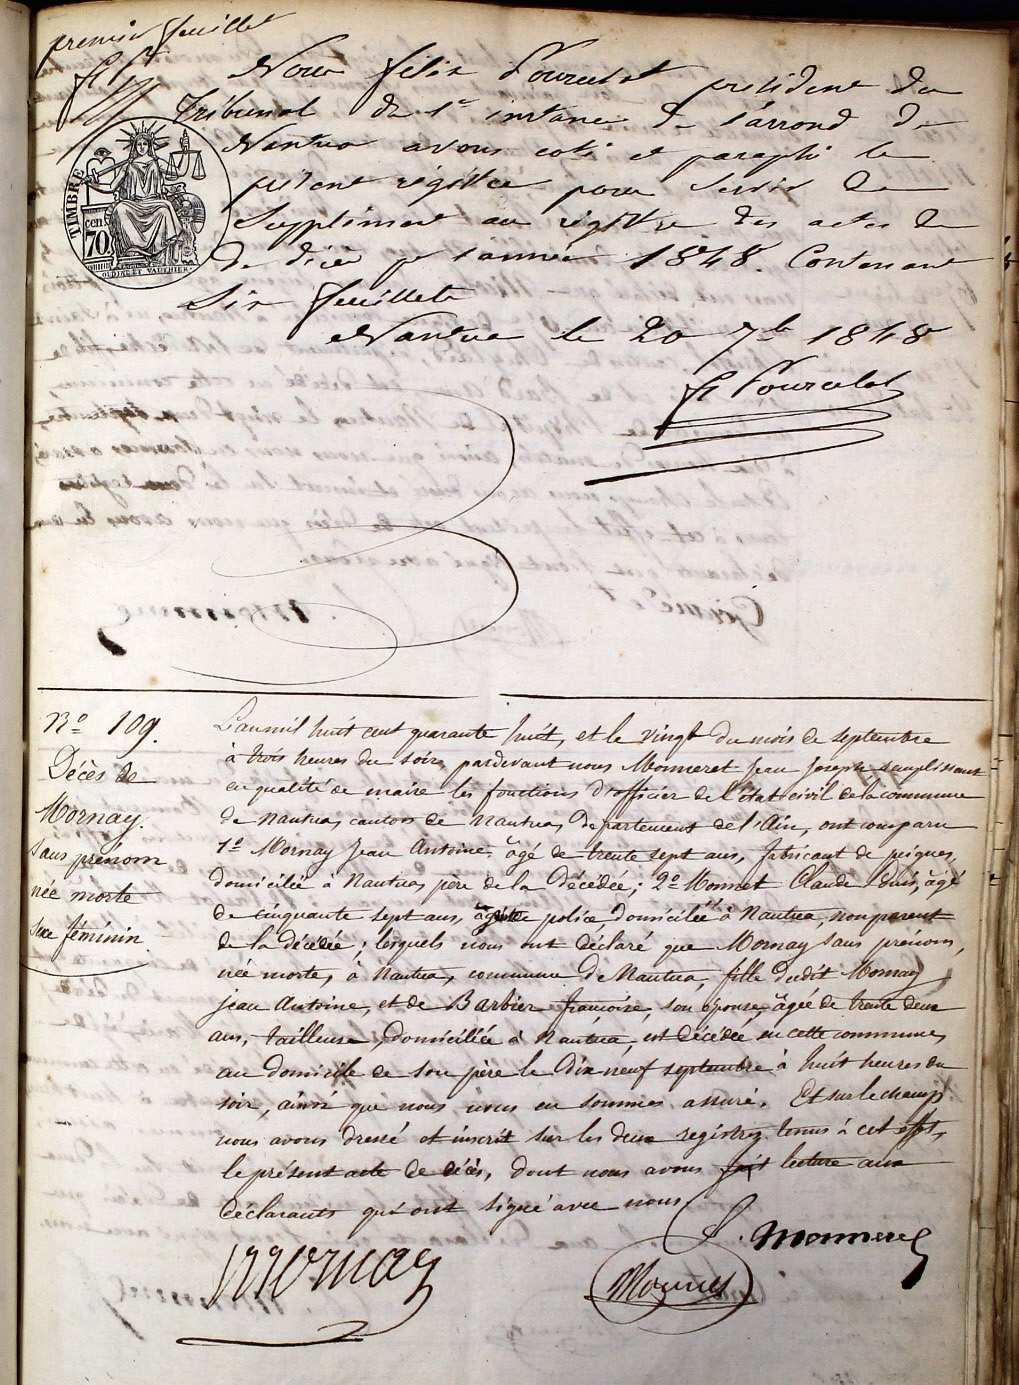 premier feuillet
Nous félix Pourcelot président du
Tribunal de 1e instance de l'arrond de
Nantua avons coté et paraphé le
présent registre pour servir de
Supplément au registre des actes de
de décès pr l'année 1848. Contenant
Six feuillets
Nantua le 20 7b 1848
TIMBRE
cen. 70
OUDINET VAUTHIER
f Pourcelot
No 109.
Décès de
Mornay.
sans prénom
née morte
sexe féminin
L'an mil huit cent quarante huit, et le vingt du mois de septembre
à trois heures du soir, pardevant nous Monneret Jean Joseph remplissant
en qualité de maire les fonctions d'officier de l'état civil de la commune
de Nantua, canton de Nantua, département de l'Ain, ont comparu
1o Mornay Jean Antoine, âgé de trente sept ans, fabricant de peignes,
domicilié à Nantua, père de la Décédée; 2o Monnet Claude Louis, âgé
de cinquante sept ans, agent de police domicilié à Nantua, non parent
de la décédée; lesquels nous ont déclaré que Mornay sans prénom,
née morte, à Nantua, commune de Nantua, fille dudit Mornay
jean Antoine, et de Barbier françoise, son épouse, âgée de trente deux
ans, tailleuse, domiciliée à Nantua, est décédée en cette commune,
au domicile de son père le Dix neuf septembre à huit heures du
soir, ainsi que nous nous en sommes assuré. Et sur le champ
nous avons dressé et inscrit sur les deux registres tenus à cet effet,
le présent acte de décès, dont nous avons fait lecture aux
déclarants qui ont signé avec nous
J. Monneret
Mornay
Monnet